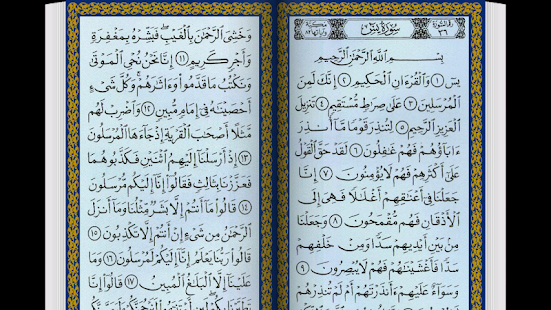 رقم السورة ٣٦ سُورَةُ يسٓ مكية وآياتها ٨٣
بِسْمِ ٱللَّهِ ٱلرَّحْمَٰنِ ٱلرَّحِيمِ
يسٓ ۝١ وَٱلْقُرْءَانِ ٱلْحَكِيمِ ۝٢ إِنَّكَ لَمِنَ
ٱلْمُرْسَلِينَ ۝٣ عَلَىٰ صِرَٰطٍ مُّسْتَقِيمٍ ۝٤ تَنزِيلَ
ٱلْعَزِيزِ ٱلرَّحِيمِ ۝٥ لِتُنذِرَ قَوْمًا مَّآ أُنذِرَ
ءَابَآؤُهُمْ فَهُمْ غَٰفِلُونَ ۝٦ لَقَدْ حَقَّ ٱلْقَوْلُ
عَلَىٰٓ أَكْثَرِهِمْ فَهُمْ لَا يُؤْمِنُونَ ۝٧ إِنَّا
جَعَلْنَا فِىٓ أَعْنَٰقِهِمْ أَغْلَٰلًا فَهِىَ إِلَى
ٱلْأَذْقَانِ فَهُم مُّقْمَحُونَ ۝٨ وَجَعَلْنَا
مِنۢ بَيْنِ أَيْدِيهِمْ سَدًّا وَمِنْ خَلْفِهِمْ
سَدًّا فَأَغْشَيْنَٰهُمْ فَهُمْ لَا يُبْصِرُونَ ۝٩
وَسَوَآءٌ عَلَيْهِمْ ءَأَنذَرْتَهُمْ أَمْ لَمْ تُنذِرْهُمْ
وَخَشِىَ ٱلرَّحْمَٰنَ بِٱلْغَيْبِ فَبَشِّرْهُ بِمَغْفِرَةٍ
وَأَجْرٍ كَرِيمٍ ۝١١ إِنَّا نَحْنُ نُحْىِ ٱلْمَوْتَىٰ
وَنَكْتُبُ مَا قَدَّمُوا۟ وَءَاثَٰرَهُمْ وَكُلَّ شَىْءٍ
أَحْصَيْنَٰهُ فِىٓ إِمَامٍ مُّبِينٍ ۝١٢ وَٱضْرِبْ لَهُم
مَّثَلًا أَصْحَٰبَ ٱلْقَرْيَةِ إِذْ جَآءَهَا ٱلْمُرْسَلُونَ
۝١٣ إِذْ أَرْسَلْنَآ إِلَيْهِمُ ٱثْنَيْنِ فَكَذَّبُوهُمَا
فَعَزَّزْنَا بِثَالِثٍ فَقَالُوٓا۟ إِنَّآ إِلَيْكُم مُّرْسَلُونَ
۝١٤ قَالُوا۟ مَآ أَنتُمْ إِلَّا بَشَرٌ مِّثْلُنَا وَمَآ أَنزَلَ
ٱلرَّحْمَٰنُ مِن شَىْءٍ إِنْ أَنتُمْ إِلَّا تَكْذِبُونَ ۝١٥
قَالُوا۟ رَبُّنَا يَعْلَمُ إِنَّآ إِلَيْكُمْ لَمُرْسَلُونَ ۝١٦ وَمَا
عَلَيْنَآ إِلَّا ٱلْبَلَٰغُ ٱلْمُبِينُ ۝١٧ قَالُوٓا۟ إِنَّا